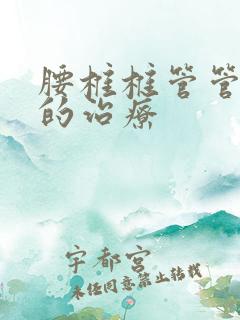 腰椎椎管管
的治疗
宇都宫
未经同意禁止转载